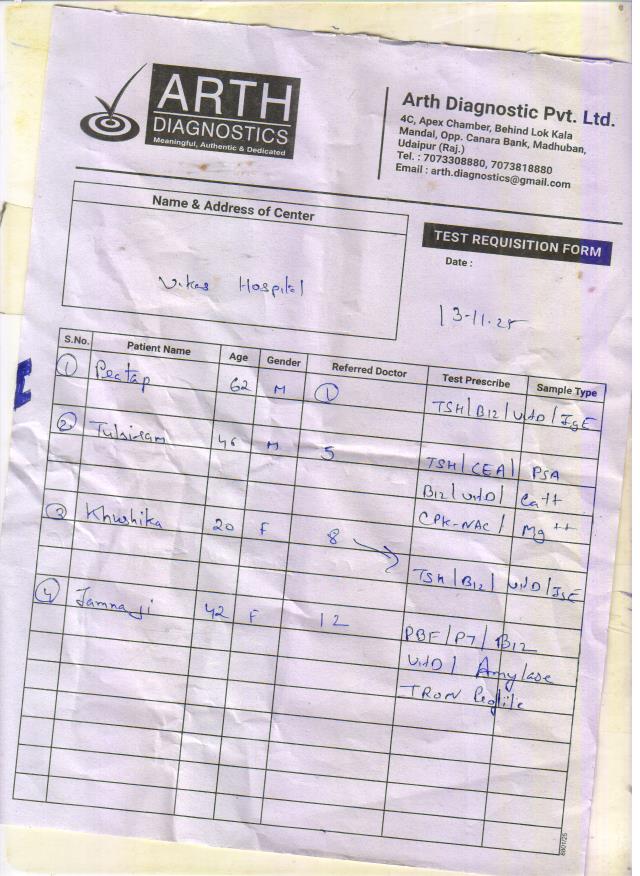 ARTH
DIAGNOSTICS
Meaningful, Authentic & Dedicated
Arth Diagnostic Pvt. Ltd.
4C, Apex Chamber, Behind Lok Kala
Mandal, Opp. Canara Bank, Madhuban,
Udaipur (Raj.)
Tel. : 7073308880, 7073818880
Email : arth.diagnostics@gmail.com
Name & Address of Center
Vikas Hospital
TEST REQUISITION FORM
Date :
13-11-25
S.No. Patient Name Age Gender Referred Doctor Test Prescribe Sample Type
1 Pratap 62 M 1 TSH/B12/VitD/IgE
2 Tulsiram 46 M 5 TSH/CEA/PSA
B12/VitD/Ca++
CPK-NAC/Mg++
3 Khushika 20 F 8 TSH/B12/VitD/IgE
4 Jamna ji 42 F 12 PBF/P7/B12
VitD/Amylase
IRON Profile